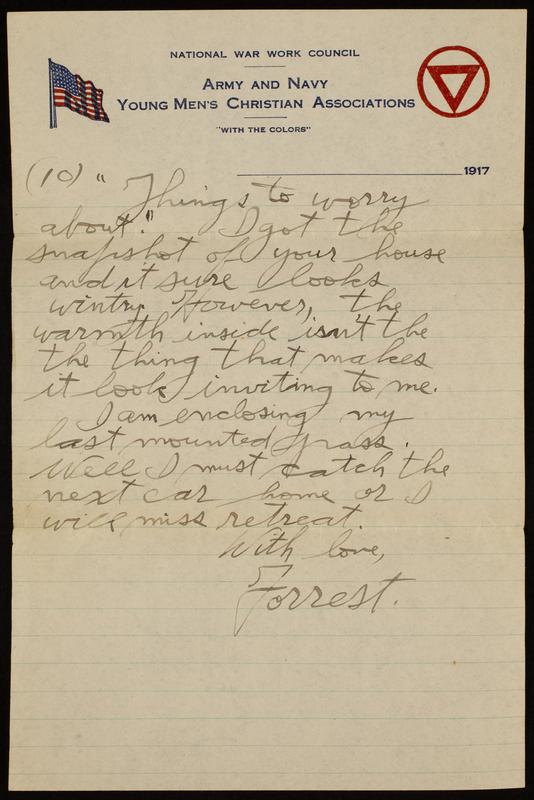 NATIONAL WAR WORK COUNCIL
ARMY AND NAVY
YOUNG MEN'S CHRISTIAN ASSOCIATIONS
"WITH THE COLORS"
1917
(10) "Things to worry
about." I got the
snapshot of your house
and it sure looks
wintry. However, the
warmth inside isn't the
the thing that makes
it look inviting to me.
I am enclosing my
last mounted pass.
Well I must catch the
next car home or I
will miss retreat.
With love,
Forrest.